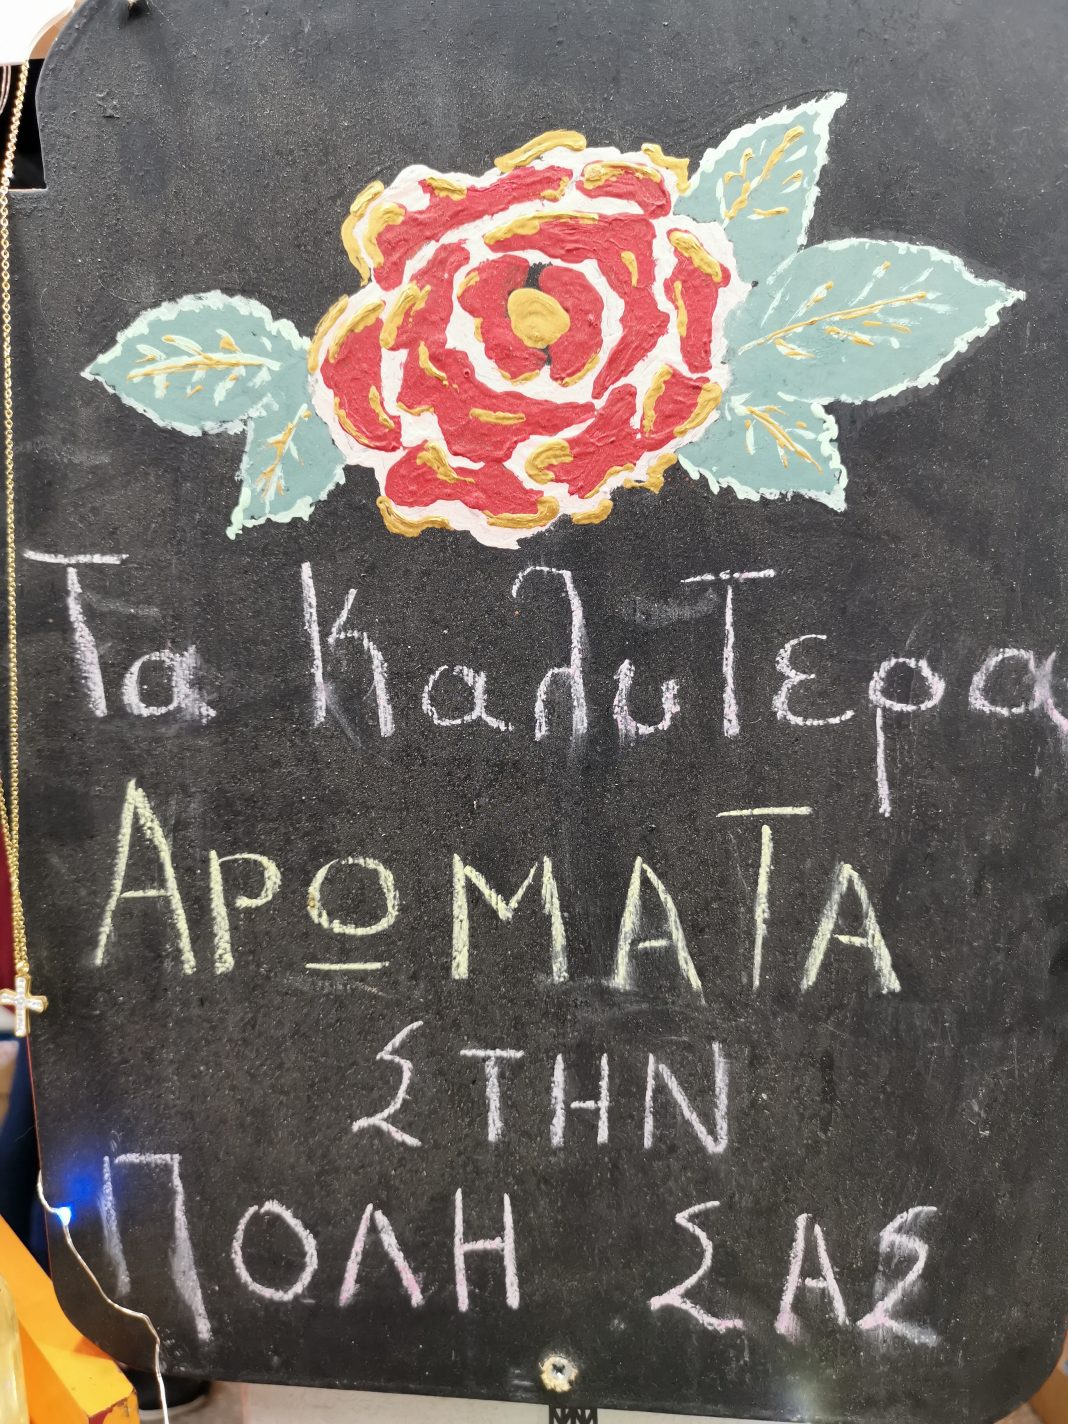 Τα Καλυτερα
ΑΡΩΜΑΤΑ
ΣΤΗΝ
ΠΟΛΗ ΣΑΣ